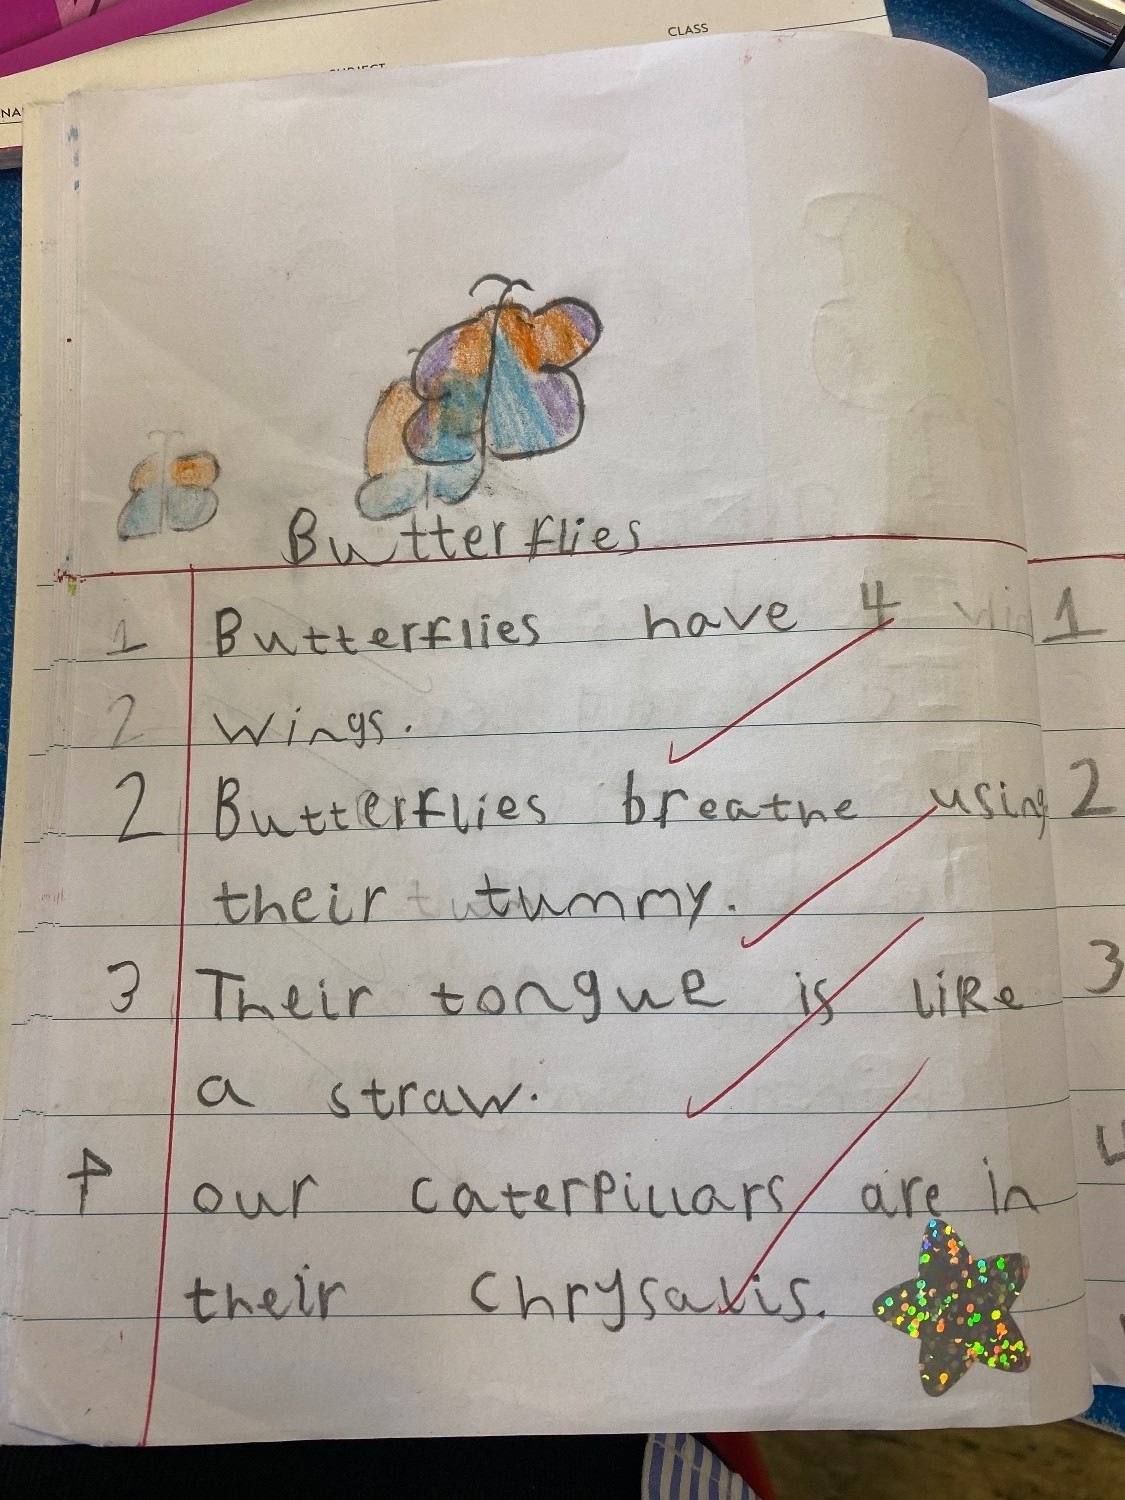 CLASS
SUBJECT
NA
Butterflies
1 Butterflies have 4 win 1
2 wings.
2 Butterflies breathe using 2
their tu tummy.
3 Their tongue is like 3
a straw.
4 our caterpillars are in 4
their Chrysalis.